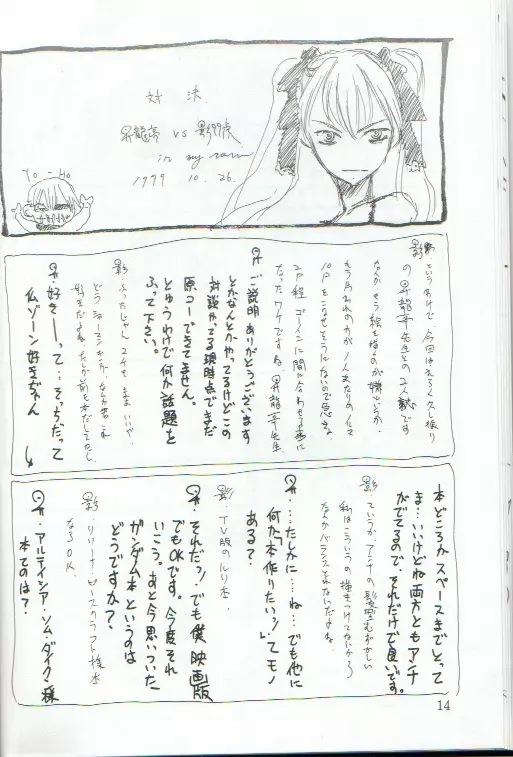 対決
昇龍亭 vs 影
in my room
1999 10.26.
Yo-Ho
影 というわけで 今回はえらく久し振り
の昇龍亭先生との2人談です
なんか もう絵を描くのが嫌というか
もう片われの方が
10Pをこなせそうにないので急きょ
2P程 ゴーインに間に合わせる事に
なったワケですね 昇龍亭先生
昇 ご説明ありがとうございます
とかなんとかやってるけどこの
対談やってる現時点でまだ
原コーできてません。
とゆうわけで何か話題を
ふって下さい。
影
どう シャーマンキングか
好きだよね たしか前も本だしてたし
昇 好きーって…そっちだって
仏ゾーン好きぢゃん
本どころかスペースまでとって
ま…いいけどね両方ともアンナ
がでてるので、それだけで良いです。
影 ていうか アンナの髪型むずかしい
私はこういうの描きつけてないから
なんかバランスとれないだよね
昇 ……たしかに…ね…でも他に
何か「本作りたいッ!」てモノ
ある?
影 TV版のルリ本.
昇 それだッ!でも僕 映画版
でもOKです。今度それ
いこう。あと今思いついた
ガンダム本というのは
どうですか?.
影 リリーナ・ピースクラフト様本
ならOK.
昇 アルテイシア・ソム・ダイクン様
本てのは?
14